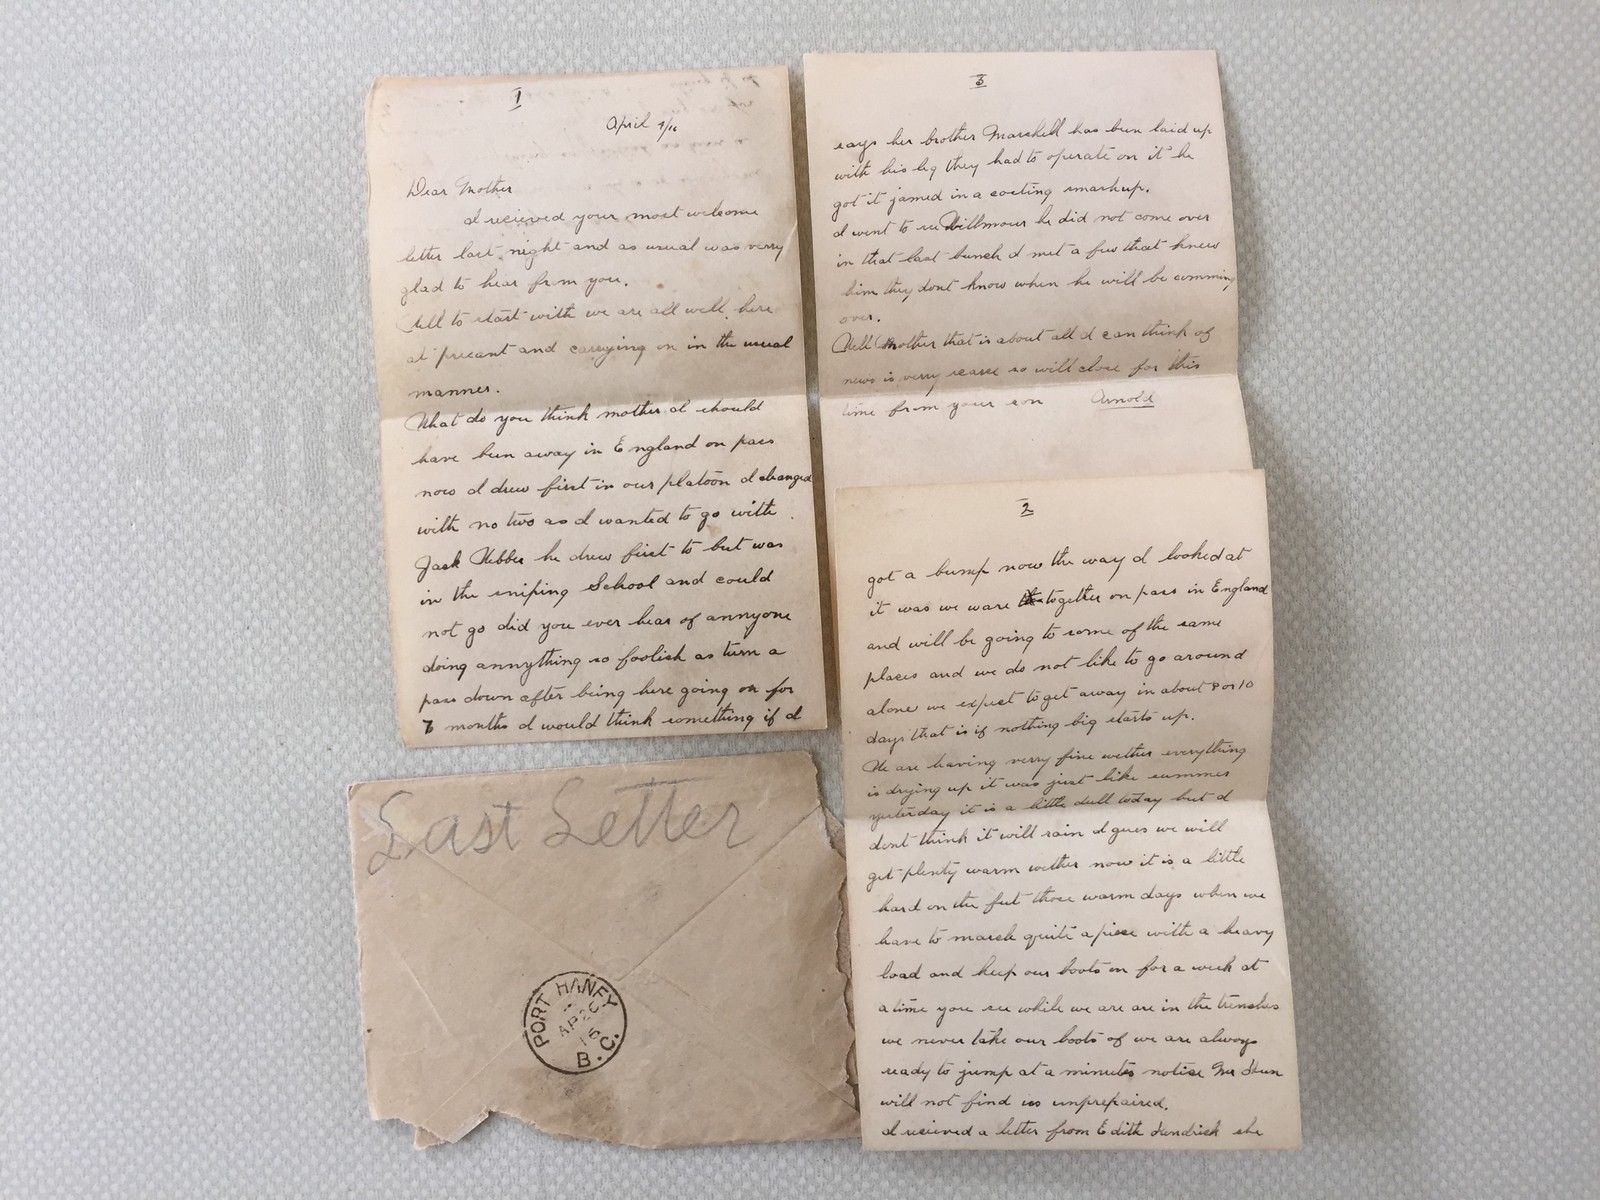 1
April 7/16
Dear Mother
I recieved your most welcome
letter last night and as usual was verry
glad to hear from you.
Well to start with we are all well here
at presant and carrying on in the usual
manner.
What do you think mother I should
have been away in England on pass
now I drew first in our platoon I changed
with no two as I wanted to go with
Jack Webber he drew first to but was
in the sniping School and could
not go did you ever hear of annyone
doing annything so foolish as turn a
pass down after being here going on for
7 months I would think something if I
2
got a bump now the way I looked at
it was we ware together on pass in England
and will be going to some of the same
places and we do not like to go around
alone we expect to get away in about 8 or 10
days that is if nothing big starts up.
We are having verry fine wether everything
is drying up it was just like summer
yesterday it is a little dull today but I
dont think it will rain I gues we will
get plenty warm wether now it is a little
hard on the feet those warm days when we
have to march quite a piece with a heavy
load and keep our boots on for a week at
a time you see while we are are in the trenches
we never take our boots of we are always
ready to jump at a minutes notice Mr Hun
will not find us unprepaired.
I recieved a letter from Edith Hendrick she
3
says her brother Marshell has been laid up
with his leg they had to operate on it he
got it jamed in a coasting smashup.
I went to see Willmour he did not come over
in that last bunch I met a few that knew
him they dont know when he will be comming
over.
Well Mother that is about all I can think of
news is verry scarse so will close for this
time from your son Arnold
Last Letter
PORT HANEY
AP 20
16
B.C.